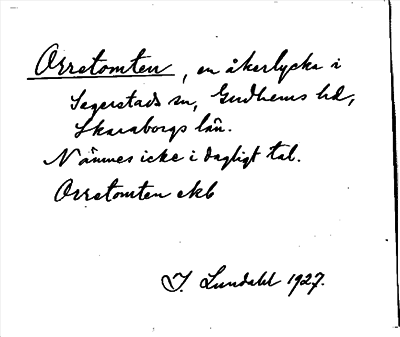 Orretomten, en åkerlycka i
Segerstads sn, Gudhems hd,
Skaraborgs län.
Nämnes icke i dagligt tal.
Orretomten ekb
I. Lundahl 1927.